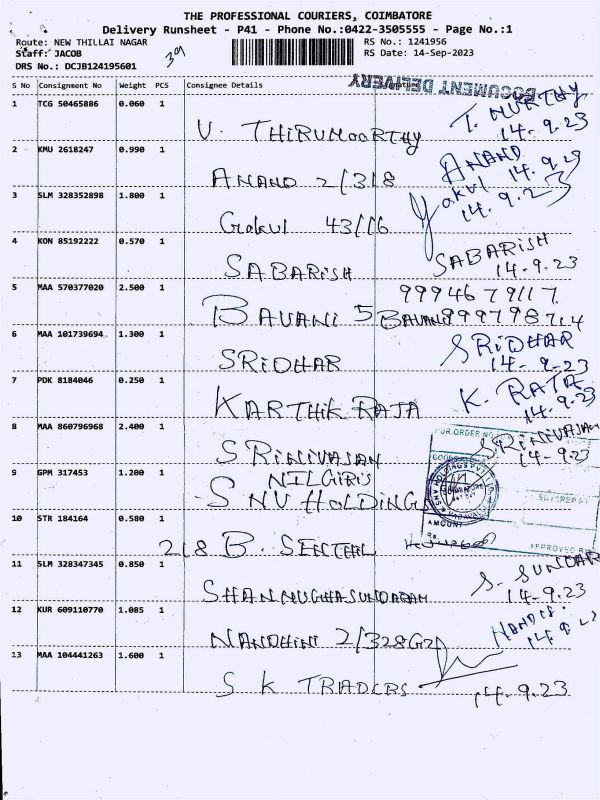 THE PROFESSIONAL COURIERS, COIMBATORE
Delivery Runsheet - P41 - Phone No.:0422-3505555 - Page No.:1
Route: NEW THILLAI NAGAR RS No.: 1241956
Staff: JACOB RS Date: 14-Sep-2023
DRS No.: DCJB124195601
DOCUMENT DELIVERY
S No Consignment No Weight PCS Consignee Details
1 TCG 50465886 0.060 1 V. THIRUMOORTHY T. MURTHY 14-9.23
2 KMU 2618247 0.990 1 ANAND 2/318 ANAND 14.9.23
3 SLM 328352898 1.800 1 Gokul 43/16 Gokul 14.9.23
4 KON 85192222 0.570 1 SABARISH SABARISH 14.9.23
5 MAA 570377020 2.500 1 BAVANI 5 BAVANI 9994679117
6 MAA 101739694 1.300 1 SRIDHAR SRIDHAR 14-9-23
7 PDK 8184046 0.250 1 KARTHIK RAJA K. RAJA 14.9.23
8 MAA 860796968 2.400 1 SRINIVASAN SRINIVASAN 14-9.23
9 GPM 317453 1.200 1 NILGIRIS
SNV HOLDINGS
PUR.ORDER NO
SNV HOLDINGS PVT
ENTERED BY
AMOUNT
Rs.
APPROVED BY
10 STR 184164 0.580 1 218 B. SENTHIL
11 SLM 328347345 0.850 1 SHANMUGHASUNDARAM S. SUNDAR 14.9.23
12 KUR 609110770 1.085 1 NANDHINI
13 MAA 104441263 1.600 1 S K TRADERS 14.9.23